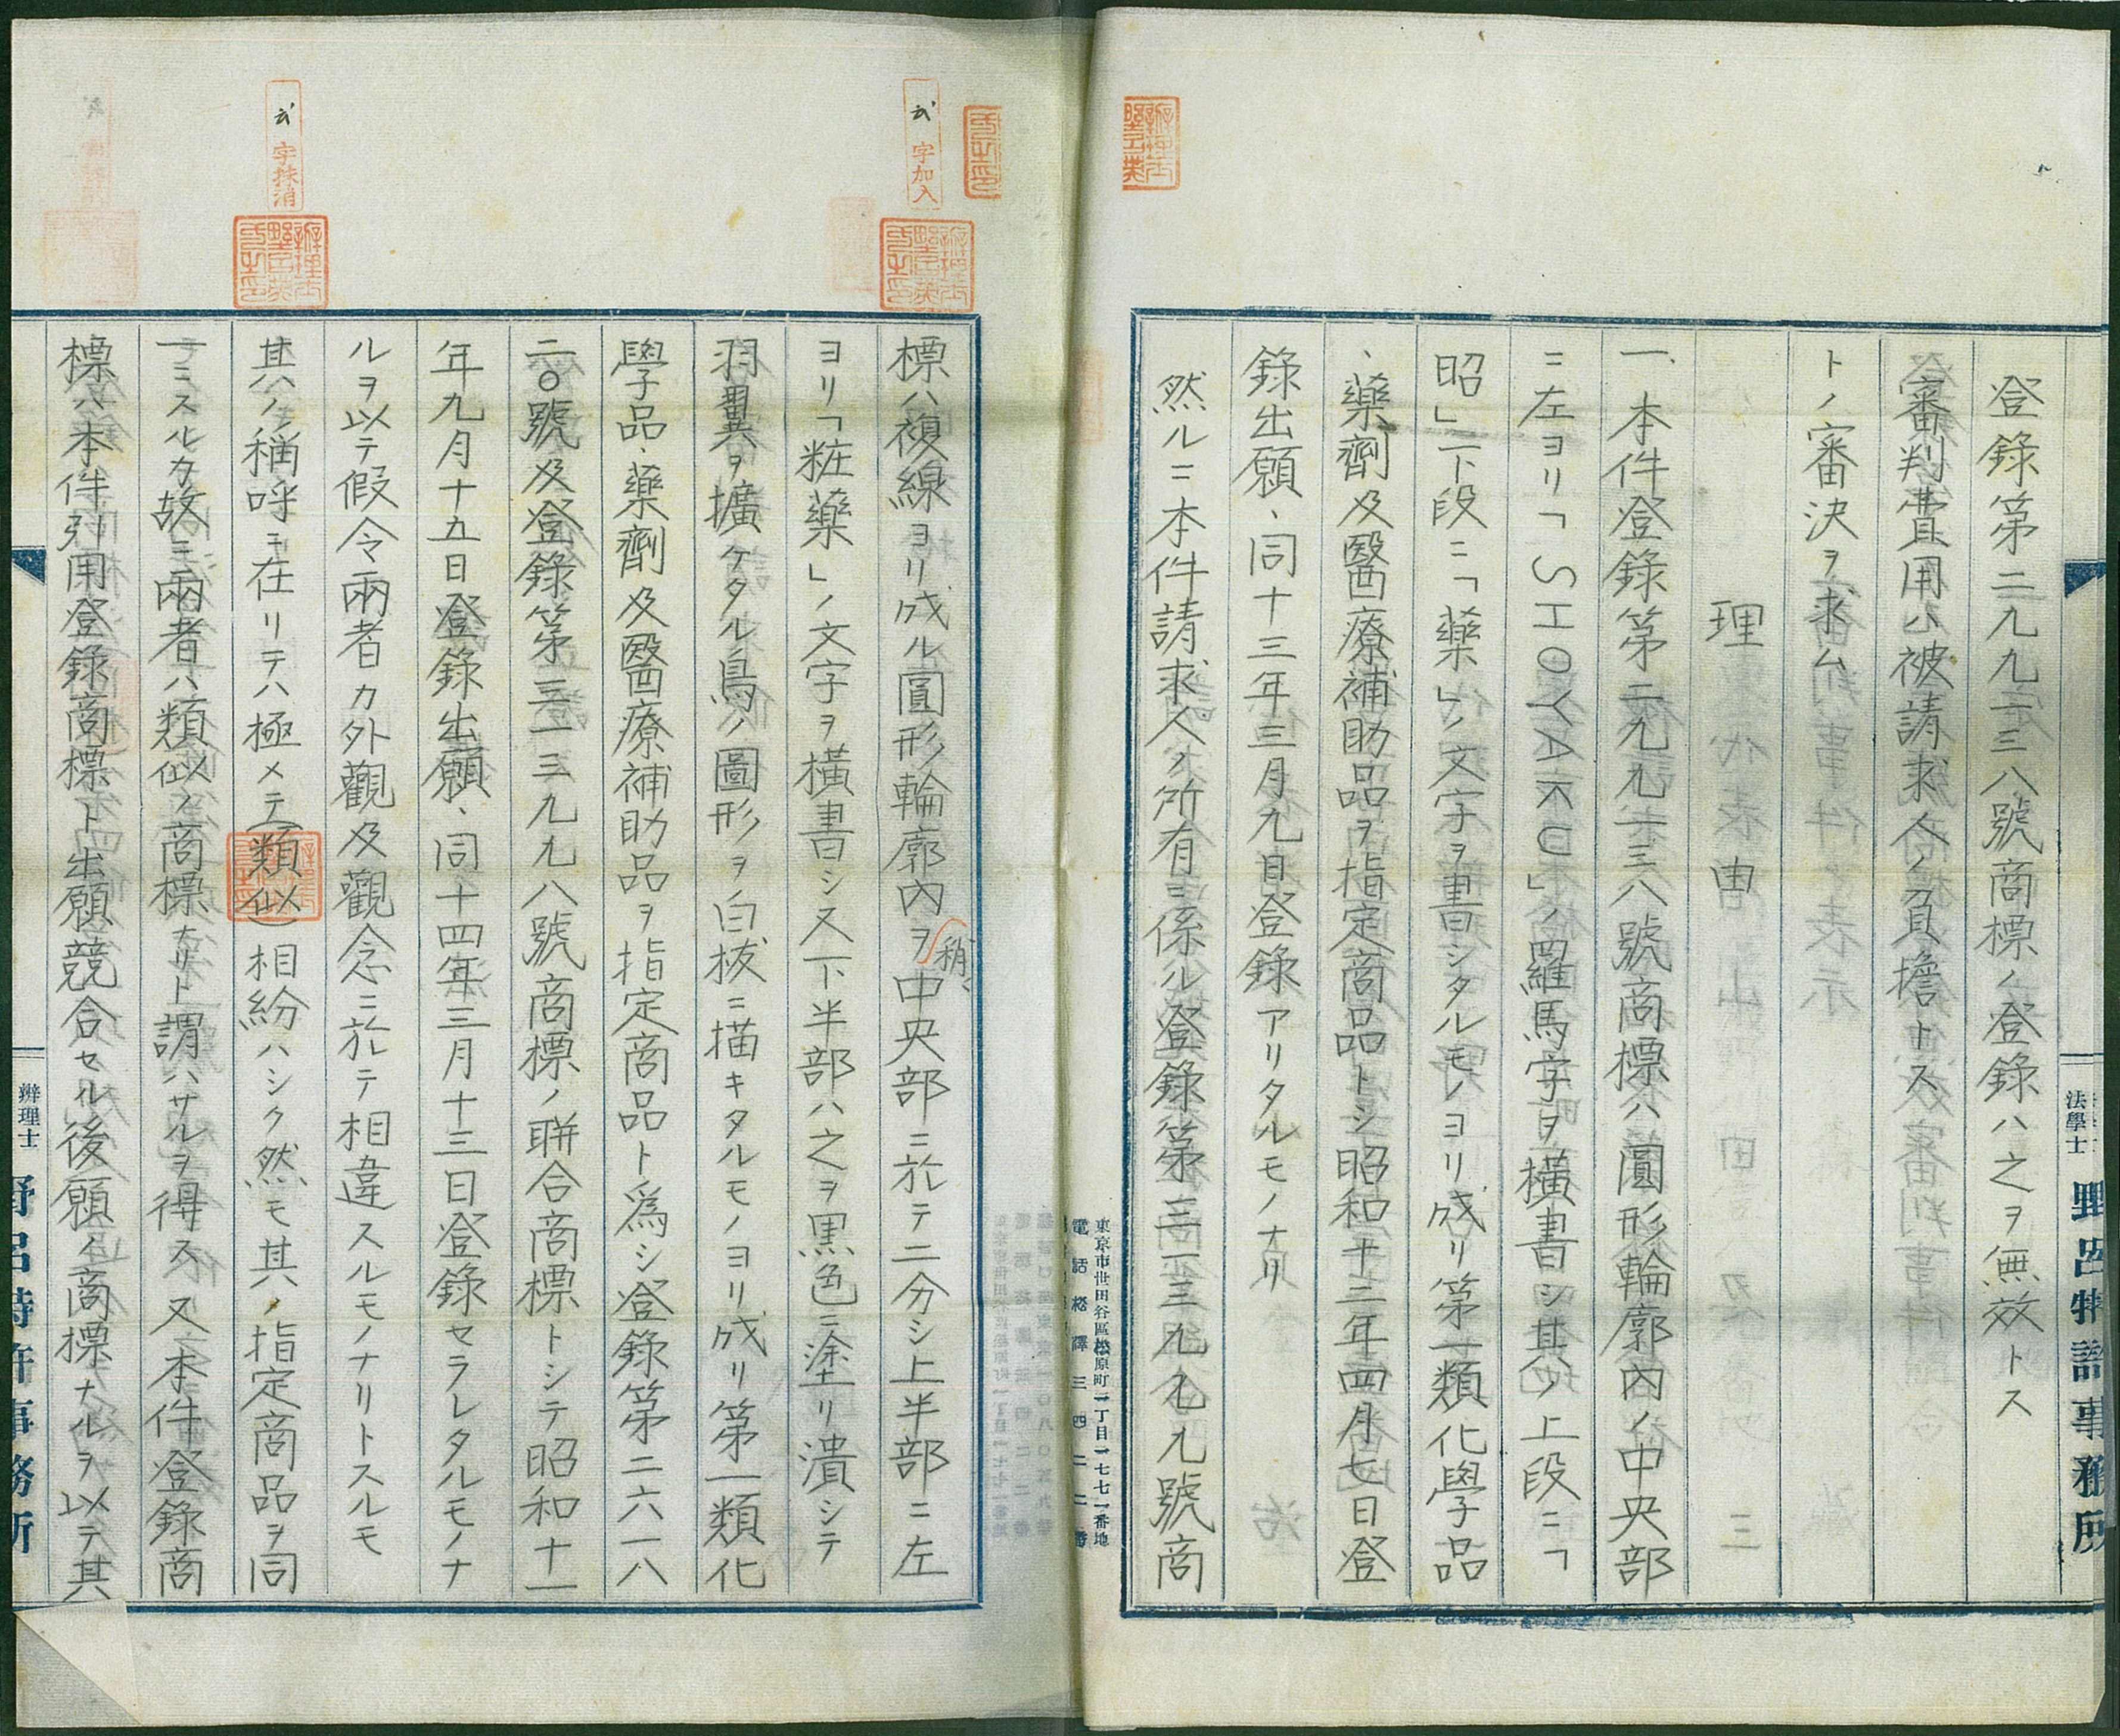 登錄第二九九一三八號商標ノ登錄ハ之ヲ無效トス
審判費用ハ被請求人ノ負擔トス
トノ審決ヲ求ム
理由
一、本件登錄第二九九一三八號商標ハ圓形輪廓內ノ中央部
ニ左ヨリ「SHOYAKU」ノ羅馬字ヲ橫書シ其ノ上段ニ「
昭」下段ニ「藥」ノ文字ヲ書シタルモノヨリ成リ第一類化學品
、藥劑及醫療補助品ヲ指定商品トシ昭和十二年四月七日登
錄出願、同十三年三月九日登錄アリタルモノナリ
然ルニ本件請求人ノ所有ニ係ル登錄第三一三九九九號商
法學士
野呂特許事務所
東京市世田谷區松原町一丁目一七七一番地
電話松澤三四二二番
弐字加入
標ハ複線ヨリ成ル圓形輪廓內ヲ稍〻中央部ニ於テ二分シ上半部ニ左
ヨリ「粧藥」ノ文字ヲ橫書シ又下半部ハ之ヲ黒色ニ塗リ潰シテ
羽翼ヲ擴ケタル鳥ノ圖形ヲ白拔ニ描キタルモノヨリ成リ第一類化
學品、藥劑及醫療補助品ヲ指定商品ト爲シ登錄第二六一八
二〇號及登錄第三一三九九八號商標ノ聯合商標トシテ昭和十一
年九月十五日登錄出願、同十四年三月十三日登錄セラレタルモノナ
ルヲ以テ假令兩者カ外觀及觀念ニ於テ相違スルモノナリトスルモ
弐字抹消
其ノ稱呼ニ在リテハ極メテ(類似)相紛ハシク然モ其ノ指定商品ヲ同
一ニスルカ故ニ兩者ハ類似ノ商標ナリト謂ハサルヲ得ス又本件登錄商
標ハ本件引用登錄商標ト出願競合セル後願ノ商標ナルヲ以テ其
辨理士
野呂特許事務所